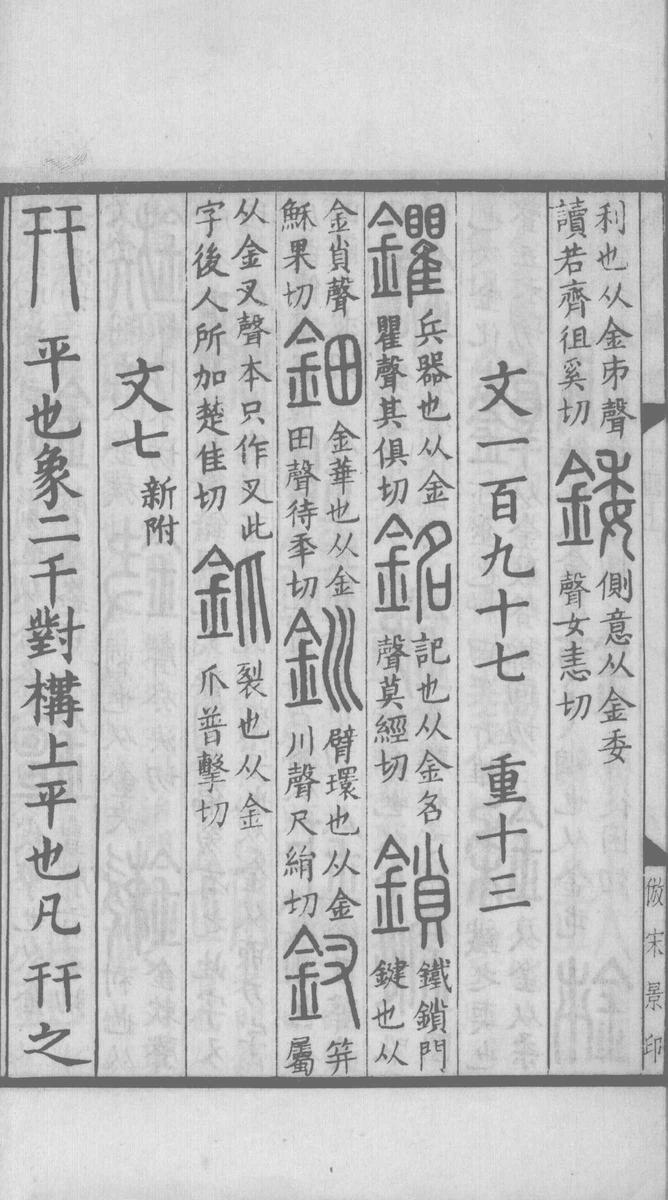 利也从金𠂔聲讀若齊徂奚切 錗 側意从金委聲女恚切
文一百九十七 重十三
鑺 兵器也从金瞿聲其俱切 銘 記也从金名聲莫經切 鎖 鐵鎖門鍵也从
金𧴪聲穌果切 鈿 金華也从金田聲待秊切 釧 臂環也从金川聲尺絹切 釵 笄屬
从金叉聲本只作叉此字後人所加楚佳切 釽 裂也从金爪普擊切
文七 新附
幵 平也象二干對構上平也凡幵之
倣宋景印